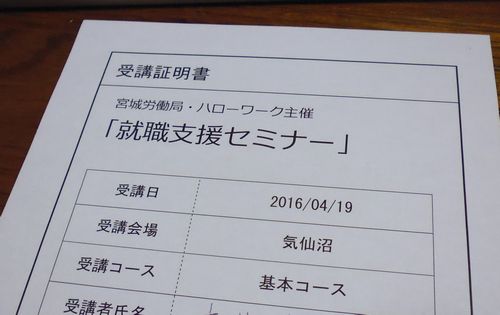 受講証明書
宮城労働局・ハローワーク主催
「就職支援セミナー」
受講日 2016/04/19
受講会場 気仙沼
受講コース 基本コース
受講者氏名